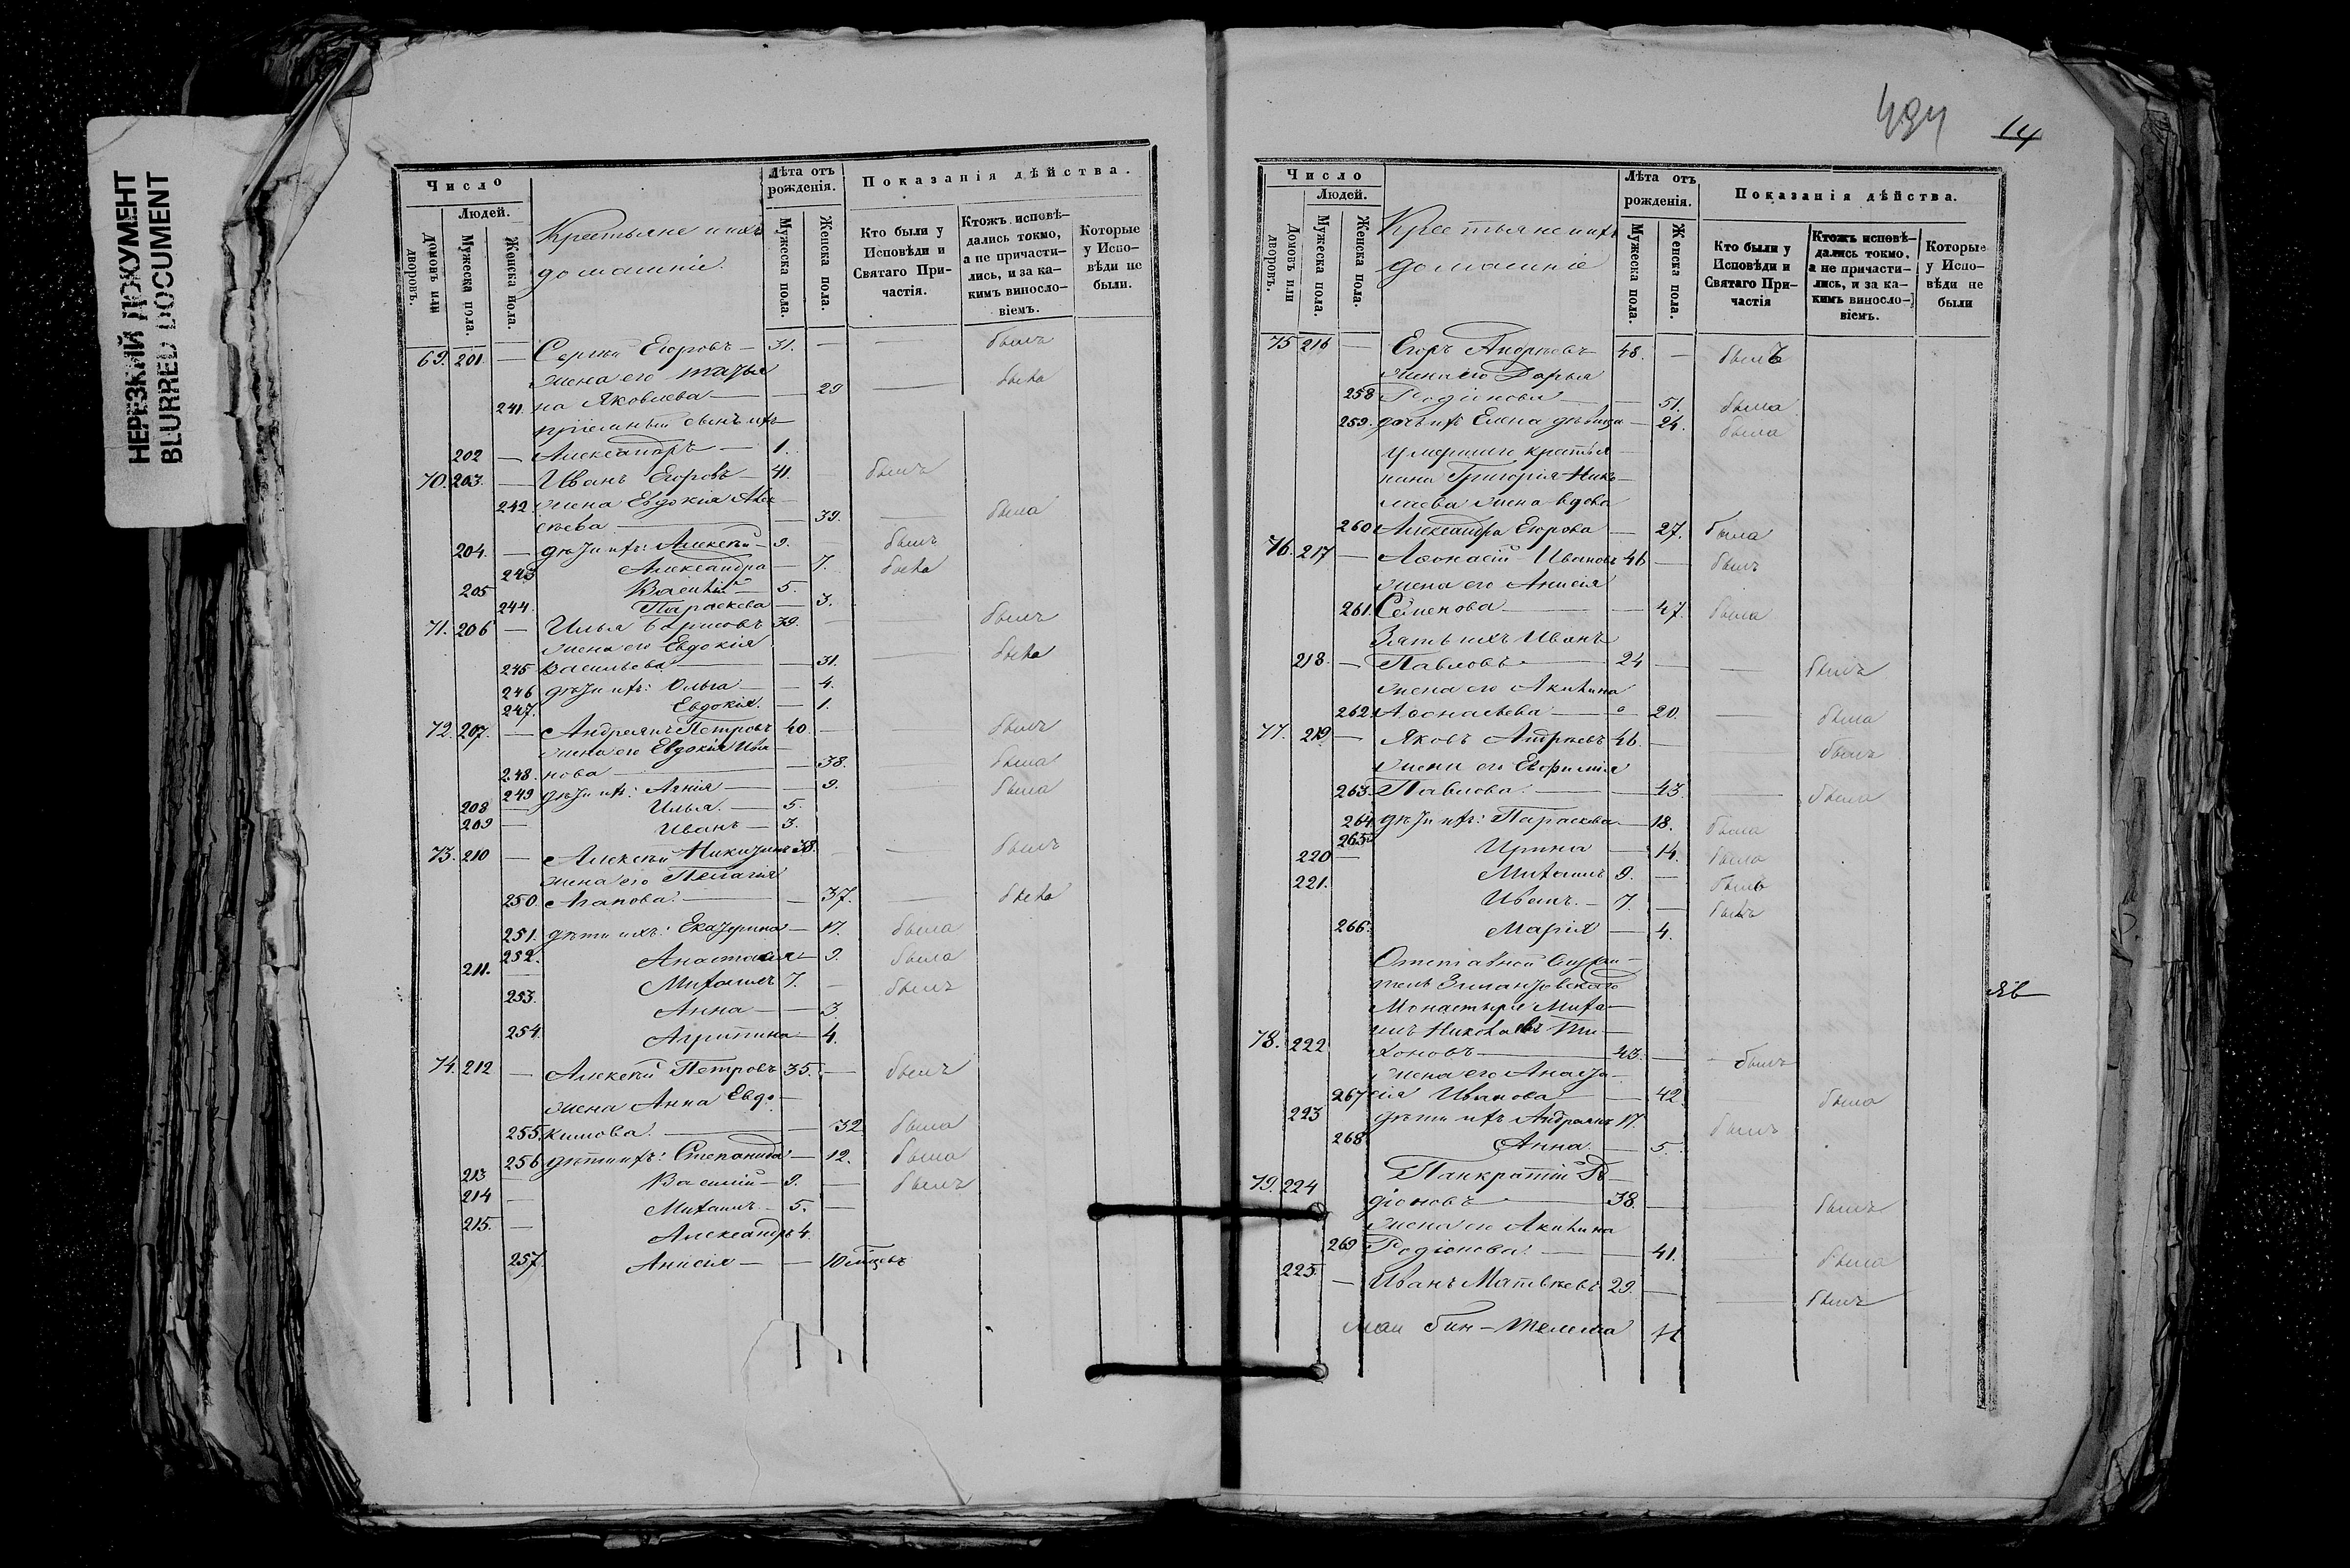 НЕРЕЗКИЙ ДОКУМЕНТ
BLURRED DOCUMENT
Число
Людей.
Домовъ или дворовъ.
Мужеска пола.
Женска пола.
Крестьяне и ихъ
домашніе.
Лѣта отъ рожденія.
Мужеска пола.
Женска пола.
Показанія дѣйства.
Кто были у Исповѣди и Святаго Причастія.
Ктожъ исповѣдались токмо, а не причастились, и за какимъ винословіемъ.
Которые у Исповѣди не были.
69. 201 — Сергѣй Егоровъ — 31. — — былъ
жена его Татья
241. на Яковлева — — 29 — была
пріемный сынъ ихъ
202 — Александръ — 1.
70. 203. — Иванъ Егоровъ — 41. былъ
242 жена Евдокія Але
ксѣева — — 39. — была
204. — дѣти ихъ: Алексѣй — 9. былъ
243 Александра — 7. была
205 Василій — 5.
244. Параскева — 3.
71. 206 — Илья Борисовъ 39. — — былъ
жена его Евдокія
245 Васильева — — 31. — была
246 дѣти ихъ: Ольга — — 4.
247. Евдокія. — 1.
72. 207. — Андреянъ Петровъ 40. — — былъ
жена его Евдокія Ива —
248. нова — — 38. — была
249 дѣти ихъ: Агнія — — 9. была
208 — Илья. — 5.
209 — Иванъ — 3.
73. 210 — Алексѣй Никитинъ 38. — — былъ
жена его Пелагія
250. Агапова. — — 37. — была
251. дѣти ихъ: Екатерина — 17. была
252. Анастасія — 9. была
211. — Михаилъ 7. — былъ
253. Анна — — 3.
254. Агрипина — 4.
74. 212 — Алексѣй Петровъ 35. — былъ
жена Анна Евдо —
255. кимова. — — 32 была
256 дѣти ихъ: Степанида — 12. была
213 — Василій — 9. — былъ
214 — Михаилъ — 5. —
215. — Александръ 4.
257. Анисія — — 10 мѣсяцевъ
14
Число
Людей.
Домовъ или дворовъ.
Мужеска пола.
Женска пола.
Крестьяне и ихъ
домашніе
Лѣта отъ рожденія.
Мужеска пола.
Женска пола.
Показанія дѣйства.
Кто были у Исповѣди и Святаго Причастія
Ктожъ исповѣдались токмо, а не причастились, и за какимъ винословіемъ.
Которые у Исповѣди не были
75 216 — Егоръ Андреевъ 48. — былъ
жена его Дарья
258 Родіонова — — 51. была
259. дочь ихъ Елена дѣвица — 24. была
умершаго крестья
нина Григорія Нико —
лаева жена вдова
260 Александра Егорова — 27. была
76. 217 — Аѳонасій Ивановъ 46 — былъ
жена его Анисія
261. Семенова — — 47. была
Зять ихъ Иванъ
218. — Павловъ — 24 — — былъ
жена его Акилина
262. Аѳонасьева — 20. — была
77. 219 — Яковъ Андреевъ 46. — былъ
жена его Евфимія
263. Павлова. — — 43. — была
264. дѣти ихъ: Параскева — 18. была
265. Ирина — 14. была
220 — Михаилъ 9. — былъ
221. Иванъ. — 7. — былъ
266. Марія — 4.
Отставной Служи —
тель
Монастыря Миха —
илъ Николаевъ Ти —
78. 222 хоновъ — 43. — былъ
жена его Анаста —
267 сія Иванова — 42. была
223 дѣти ихъ Андреянъ 17. былъ
268 Анна. — 5.
Панкратій Ро —
79. 224 діоновъ — 38. — — былъ
жена его Акилина
269 Родіонова. — — 41. — была
225. — Иванъ Матвѣевъ 29. — — былъ